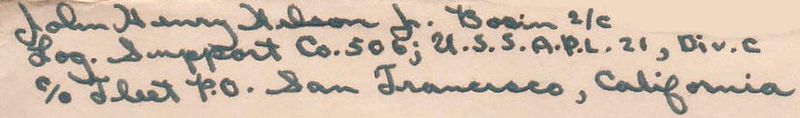 John Henry Nelson Jr. Bosin 2/c
Log. Support Co. 506; U.S.S. A.P.L. 21, Div. C
c/o Fleet P.O. San Francisco, California